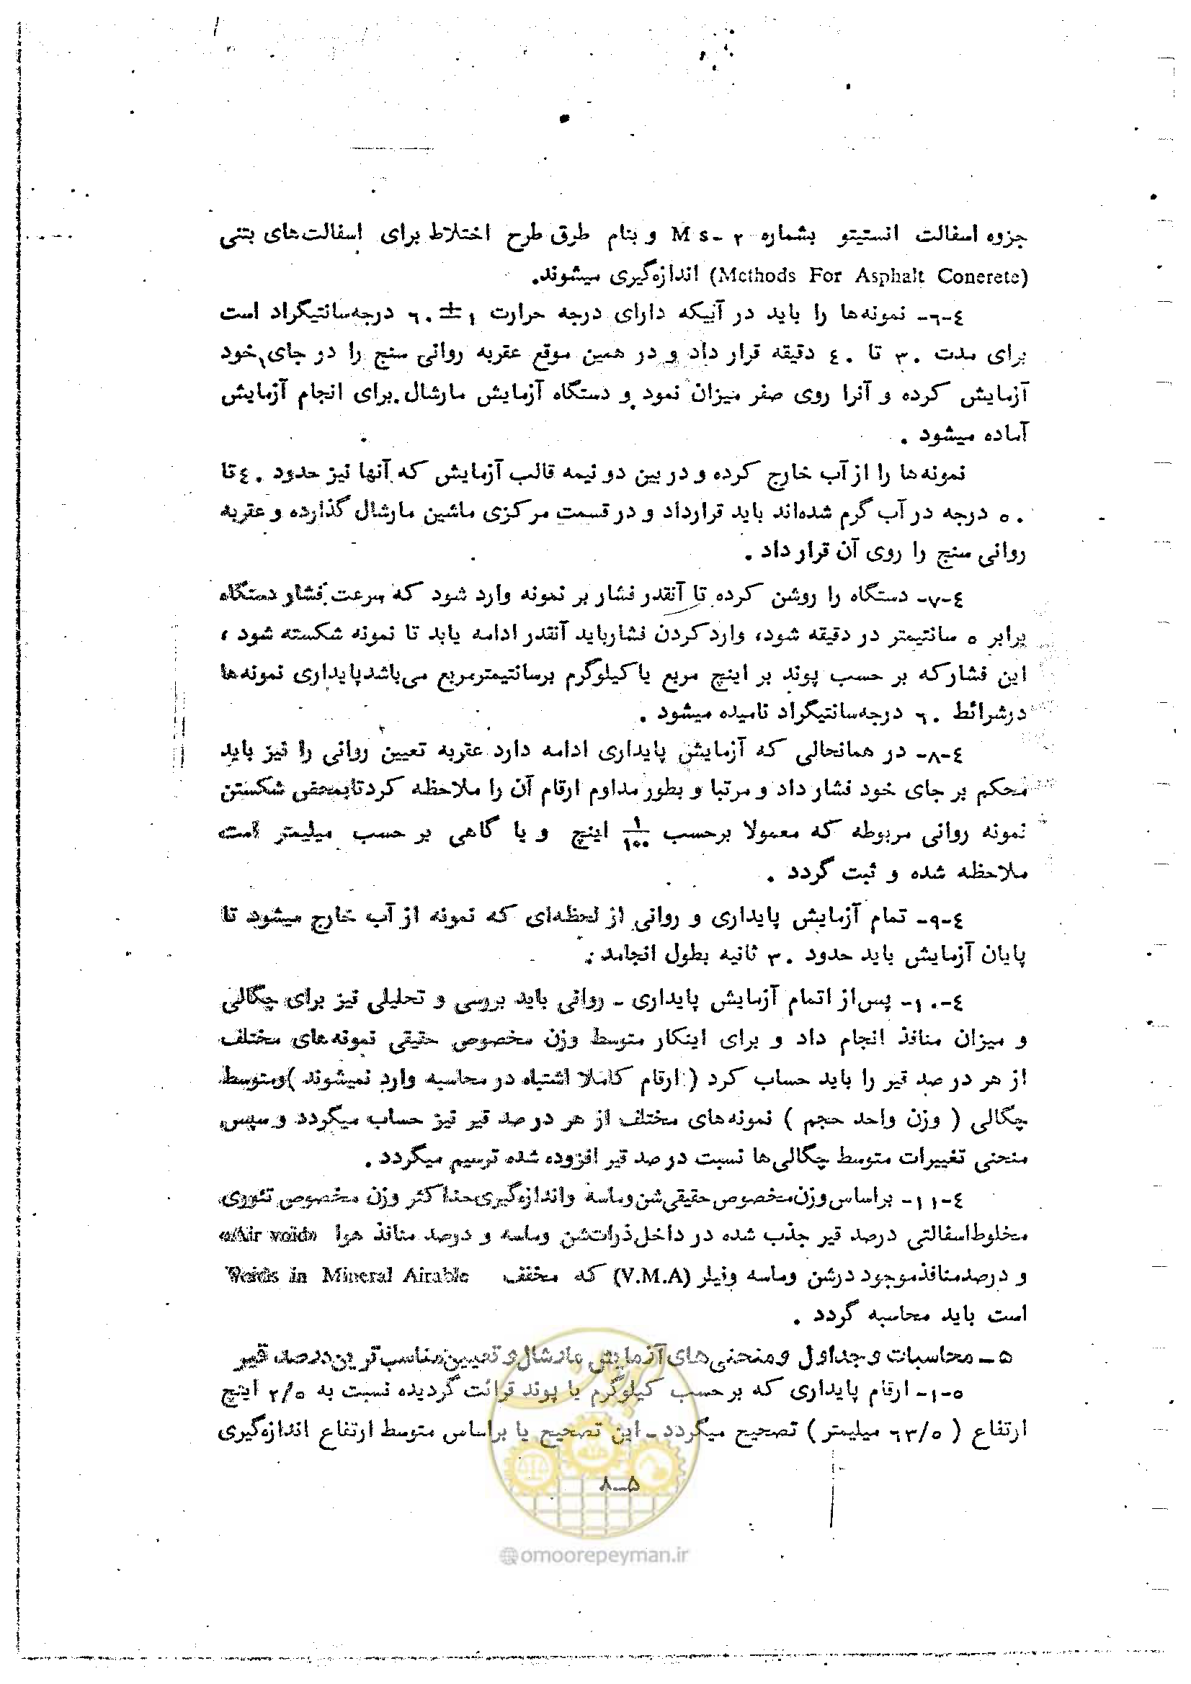 جزوه اسفالت انستیتو بشماره Ms-۲ و بنام طرق طرح اختلاط برای اسفالت‌های بتنی
(Methods For Asphalt Conerete) اندازه‌گیری میشوند.
۴-۶- نمونه‌ها را باید در آبیکه دارای درجه حرارت ۱±۶۰ درجه‌سانتیگراد است
برای مدت ۳۰ تا ۴۰ دقیقه قرار داد و در همین موقع عقربه روانی سنج را در جای خود
آزمایش کرده و آنرا روی صفر میزان نمود و دستگاه آزمایش مارشال برای انجام آزمایش
آماده میشود .
نمونه‌ها را از آب خارج کرده و در بین دو نیمه قالب آزمایش که آنها نیز حدود ۴۰ تا
۵۰ درجه در آب گرم شده‌اند باید قرارداد و در قسمت مرکزی ماشین مارشال گذارده و عقربه
روانی سنج را روی آن قرار داد .
۴-۷- دستگاه را روشن کرده تا آنقدر فشار بر نمونه وارد شود که سرعت فشار دستگاه
برابر ۵ سانتیمتر در دقیقه شود، وارد کردن فشار باید آنقدر ادامه یابد تا نمونه شکسته شود ،
این فشار که بر حسب پوند بر اینچ مربع یا کیلوگرم برسانتیمترمربع می‌باشد پایداری نمونه‌ها
درشرائط ۶۰ درجه‌سانتیگراد نامیده میشود .
۴-۸- در همانحالی که آزمایش پایداری ادامه دارد عقربه تعیین روانی را نیز باید
محکم بر جای خود فشار داد و مرتبا و بطور مداوم ارقام آن را ملاحظه کرد تا بمحض شکستن
نمونه روانی مربوطه که معمولا برحسب ۱/۱۰۰ اینچ و یا گاهی بر حسب میلیمتر است
ملاحظه شده و ثبت گردد .
۴-۹- تمام آزمایش پایداری و روانی از لحظه‌ای که نمونه از آب خارج میشود تا
پایان آزمایش باید حدود ۳۰ ثانیه بطول انجامد .
۴-۱۰- پس‌از اتمام آزمایش پایداری - روانی باید بررسی و تحلیلی نیز برای چگالی
و میزان منافذ انجام داد و برای اینکار متوسط وزن مخصوص حقیقی نمونه‌های مختلف
از هر در صد قیر را باید حساب کرد ( ارقام کاملا اشتباه در محاسبه وارد نمیشوند ) و متوسط
چگالی ( وزن واحد حجم ) نمونه‌های مختلف از هر در صد قیر نیز حساب میگردد و سپس
منحنی تغییرات متوسط چگالی‌ها نسبت در صد قیر افزوده شده ترسیم میگردد .
۴-۱۱- براساس وزن مخصوص حقیقی شن و ماسه و اندازه‌گیری حداکثر وزن مخصوص تئوری
مخلوط اسفالتی درصد قیر جذب شده در داخل ذرات شن و ماسه و درصد منافذ هوا «Air void»
و درصد منافذ موجود درشن و ماسه و فیلر (V.M.A) که مخفف Voids in Mineral Airable
است باید محاسبه گردد .
۵ - محاسبات و جداول و منحنی‌های آزمایش مارشال و تعیین مناسب‌ترین درصد قیر
۵-۱- ارقام پایداری که بر حسب کیلوگرم یا پوند قرائت گردیده نسبت به ۲/۵ اینچ
ارتفاع ( ۶۳/۵ میلیمتر ) تصحیح میگردد - این تصحیح یا براساس متوسط ارتفاع اندازه‌گیری
۸-۵
@omoorepeyman.ir